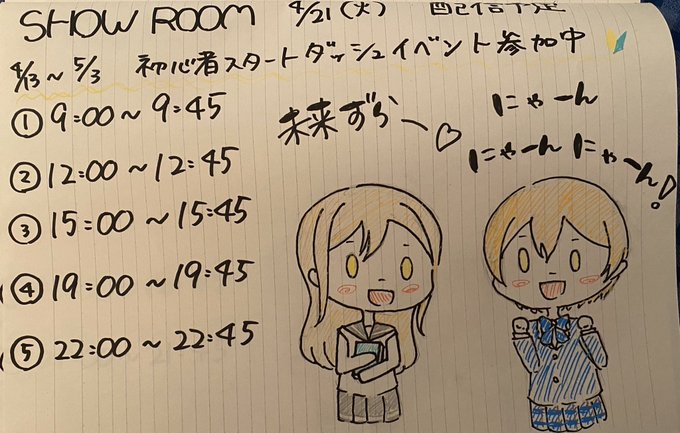 SHOW ROOM 4/21(火) 配信予定
4/13~5/3 初心者スタートダッシュイベント参加中
① 9:00~9:45
② 12:00~12:45
③ 15:00~15:45
④ 19:00~19:45
⑤ 22:00~22:45
未来ずら~♡
にゃーん
にゃーん にゃーん!